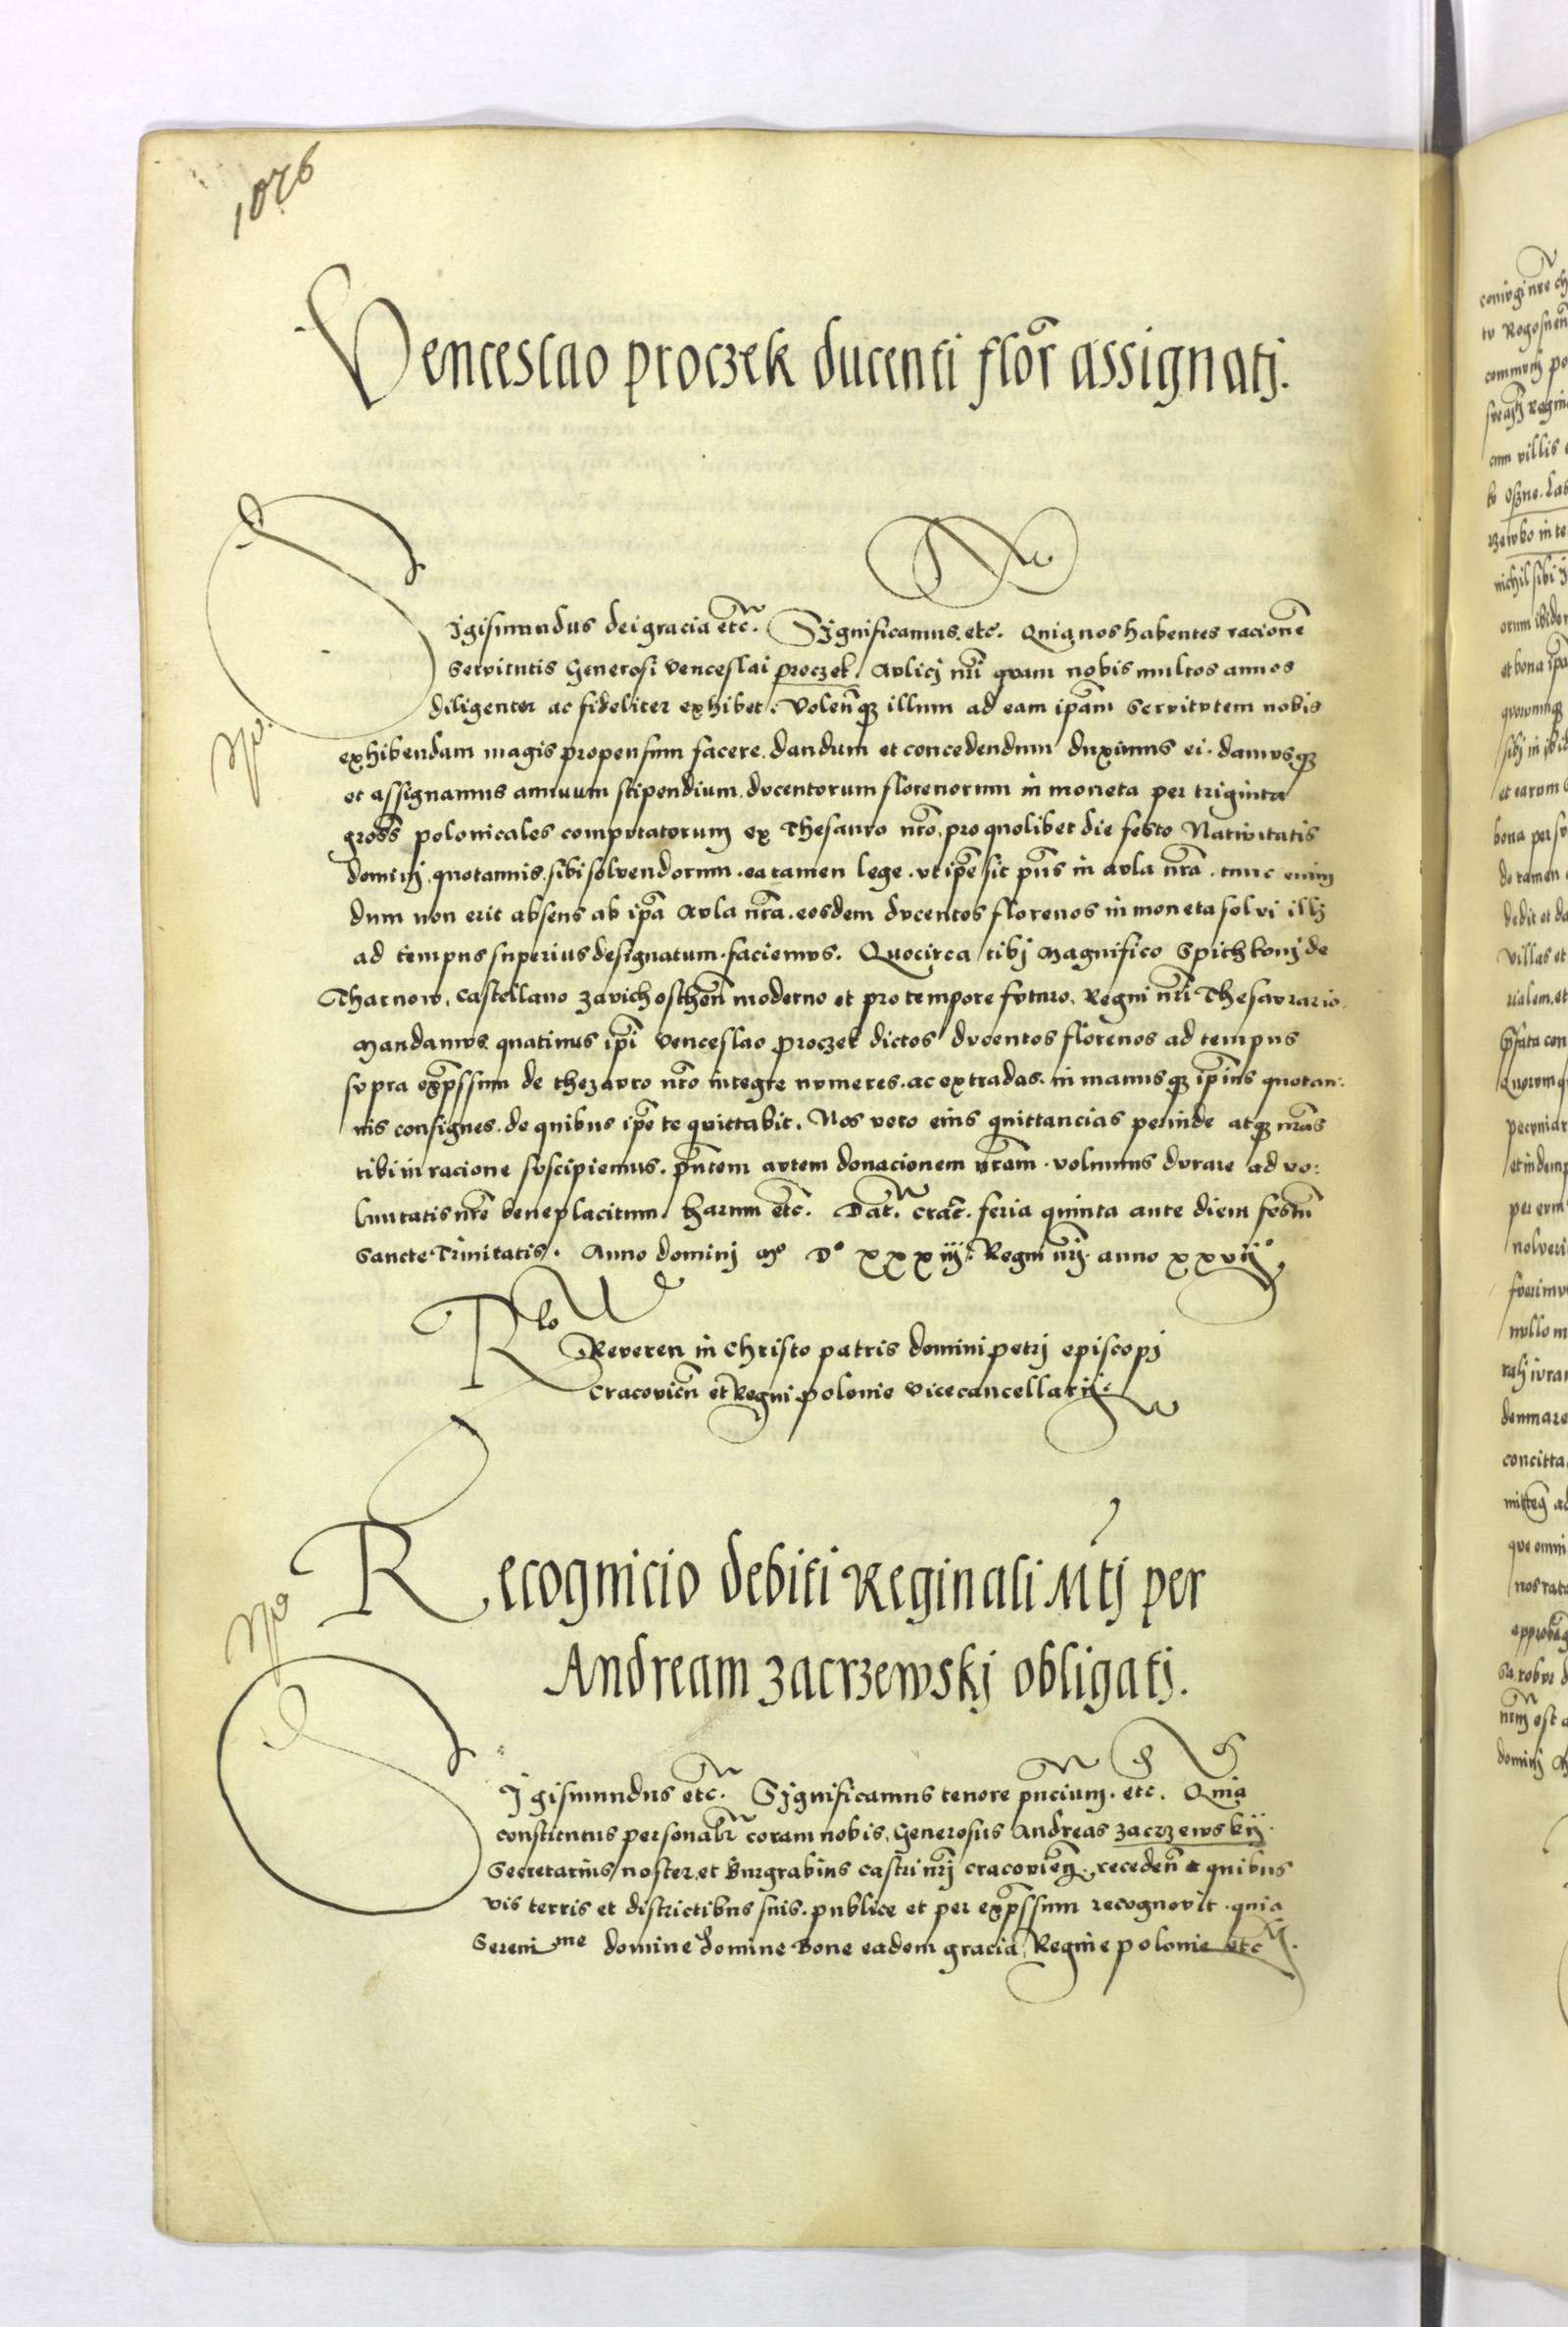 1076
Venceslao proczek ducenti flor̃ assignatj.
Sigismundus dei gracia etc̃. Significamus. etc. Quia nos habentes racionẽ
servitutis Generosi Venceslai proczek. Aulicj nr̃i quam nobis multos annos
diligenter ac fideliter exhibet. Volen̄q̃ illum ad eam ip̃am servitutem nobis
exhibendam magis propensum facere. dandum et concedendum duximus ei. damusq̃
et assignamus annuum stipendium ducentorum florenorum in moneta per triginta
gross̃ polonicales computatorum ex Thesauro nr̃o. pro quolibet die festo Nativitatis
dominj. quotannis. sibi solvendorum. ea tamen lege. ut ip̃e sit p̃ns in aula nr̃a. tunc enim
dum non erit absens ab ip̃a Aula nr̃a. eosdem ducentos florenos in moneta solvi illj
ad tempus superius designatum. faciemus. Quocirca tibj Magnifico Spithkonj de
Tharnow, Castellano Zavichosthen̄ moderno et pro tempore futuro, Regni nr̃i Thesaurario
Mandamus quatinus ip̃i Venceslao Proczek dictos ducentos florenos ad tempus
supra exp̃ssum de thezauro nr̃o integre numeres. ac extradas. in manusq̃ ip̃ius quotan:
nis consignes. de quibus ip̃e te quittabit. Nos vero eius quittancias perinde atq̃ nr̃as
tibi in racione suscipiemus. p̃ntem autem donacionem nr̃am. volumus durare ad vo:
luntatis nr̃e beneplacitum. harum etc̃. Dat̃. crac̃. feria quinta ante diem festũ
Sancte Trinitatis. Anno dominj Mº Dº xxxiijº. Regni nr̃j. anno xxvijº.
Rlo Reveren in Christo patris domini petrj episcopj
Cracovien̄ et Regni polonie vicecancellarij.
Recognicio debiti Reginali Mtj per
Andream zacrzewskj obligatj.
Sigismundus etc̃. Significamus tenore p̃ncium. etc. Quia
constitutus personalr̃ coram nobis, Generosus Andreas zacrzewskij.
Secretarius noster, et Burgrabius castri nr̃j cracovien̄. receden̄ a quibus
vis terris et districtibus suis. publice et per exp̃ssum recognovit. quia
Serenime domine domine Bone eadem gracia Regine polonie etc.